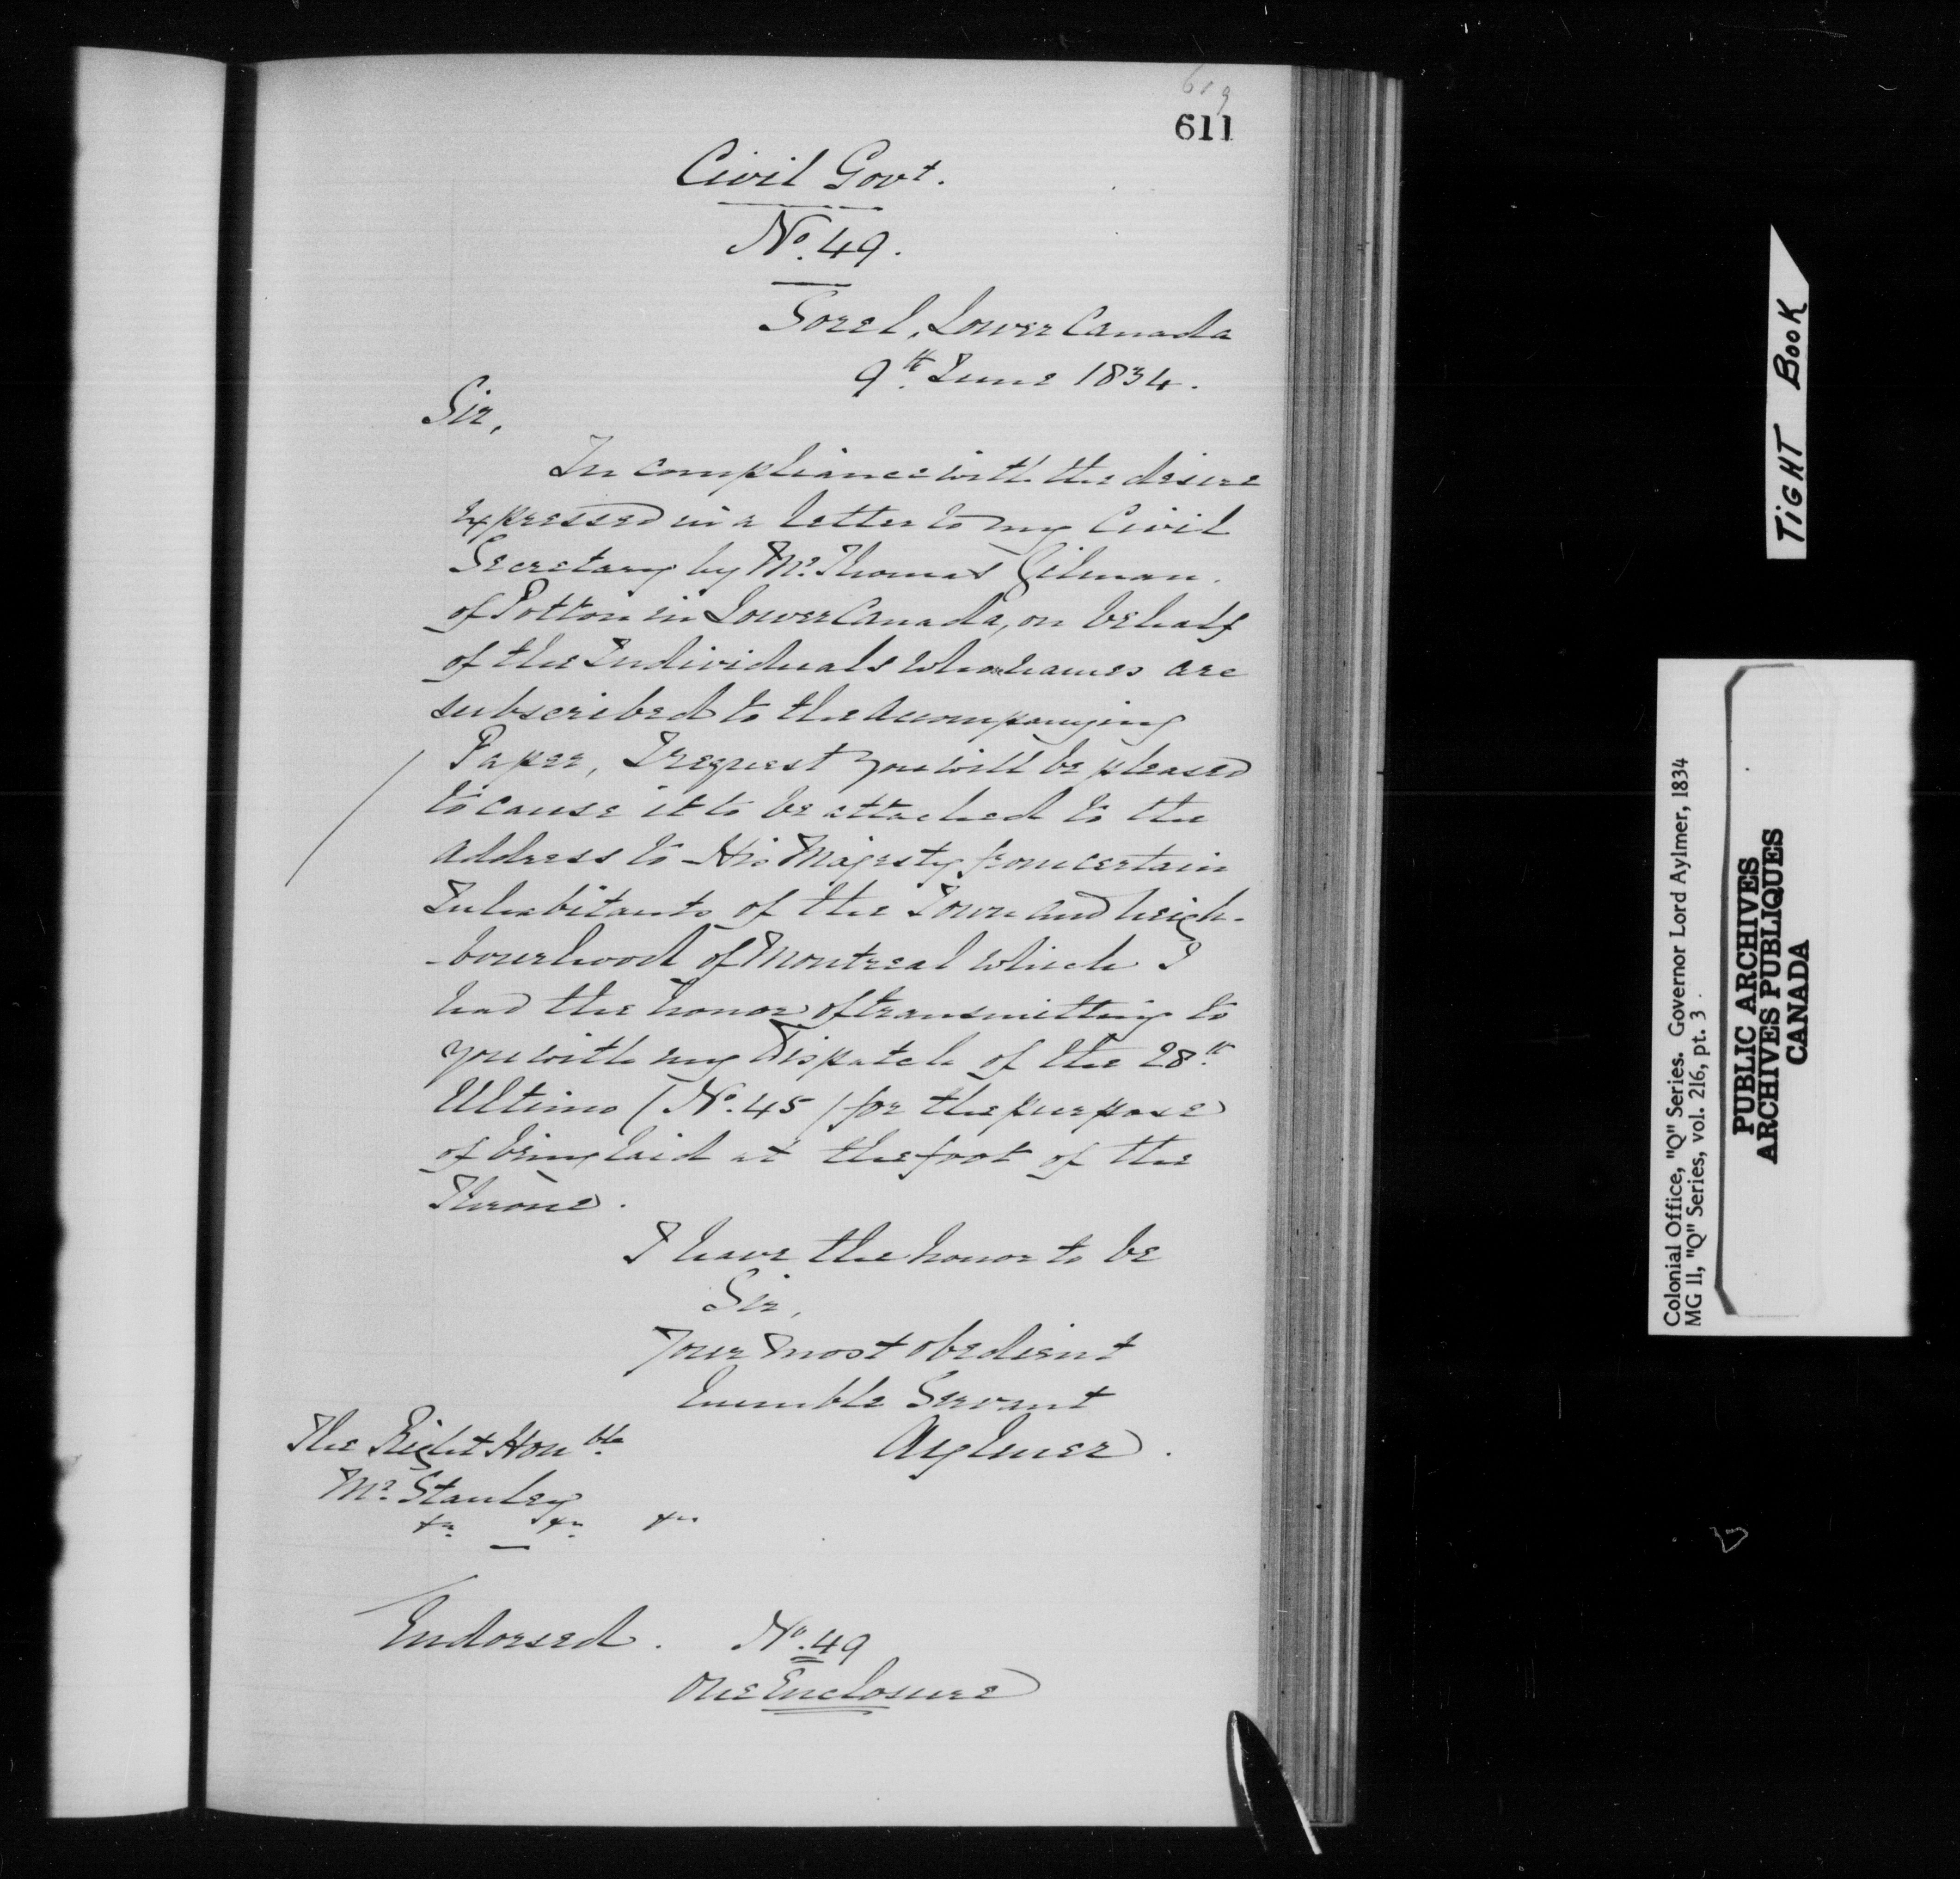 609
611
Civil Govt.
No. 49.
Sorel, Lower Canada
9th June 1834.
Sir,
In compliance with the desire
expressed in a letter to my Civil
Secretary by Mr. Thomas Gilman
of Potton in Lower Canada, on behalf
of the Individuals whose names are
subscribed to the accompanying
Paper, I request you will be pleased
to cause it to be attached to the
address to His Majesty from certain
Inhabitants of the Town and neigh-
-bourhood of Montreal which I
had the honor of transmitting to
you with my Dispatch of the 28th
Ultimo (No. 45) for the purpose
of being laid at the foot of the
Throne.
I have the honor to be
Sir,
Your most obedient
humble Servant
Aylmer.
The Right Honble
Mr. Stanley
&c. &c. &c.
Endorsed. No. 49
One Enclosure
TIGHT BOOK
Colonial Office, "Q" Series. Governor Lord Aylmer, 1834
MG 11, "Q" Series, vol. 216, pt. 3.
PUBLIC ARCHIVES
ARCHIVES PUBLIQUES
CANADA